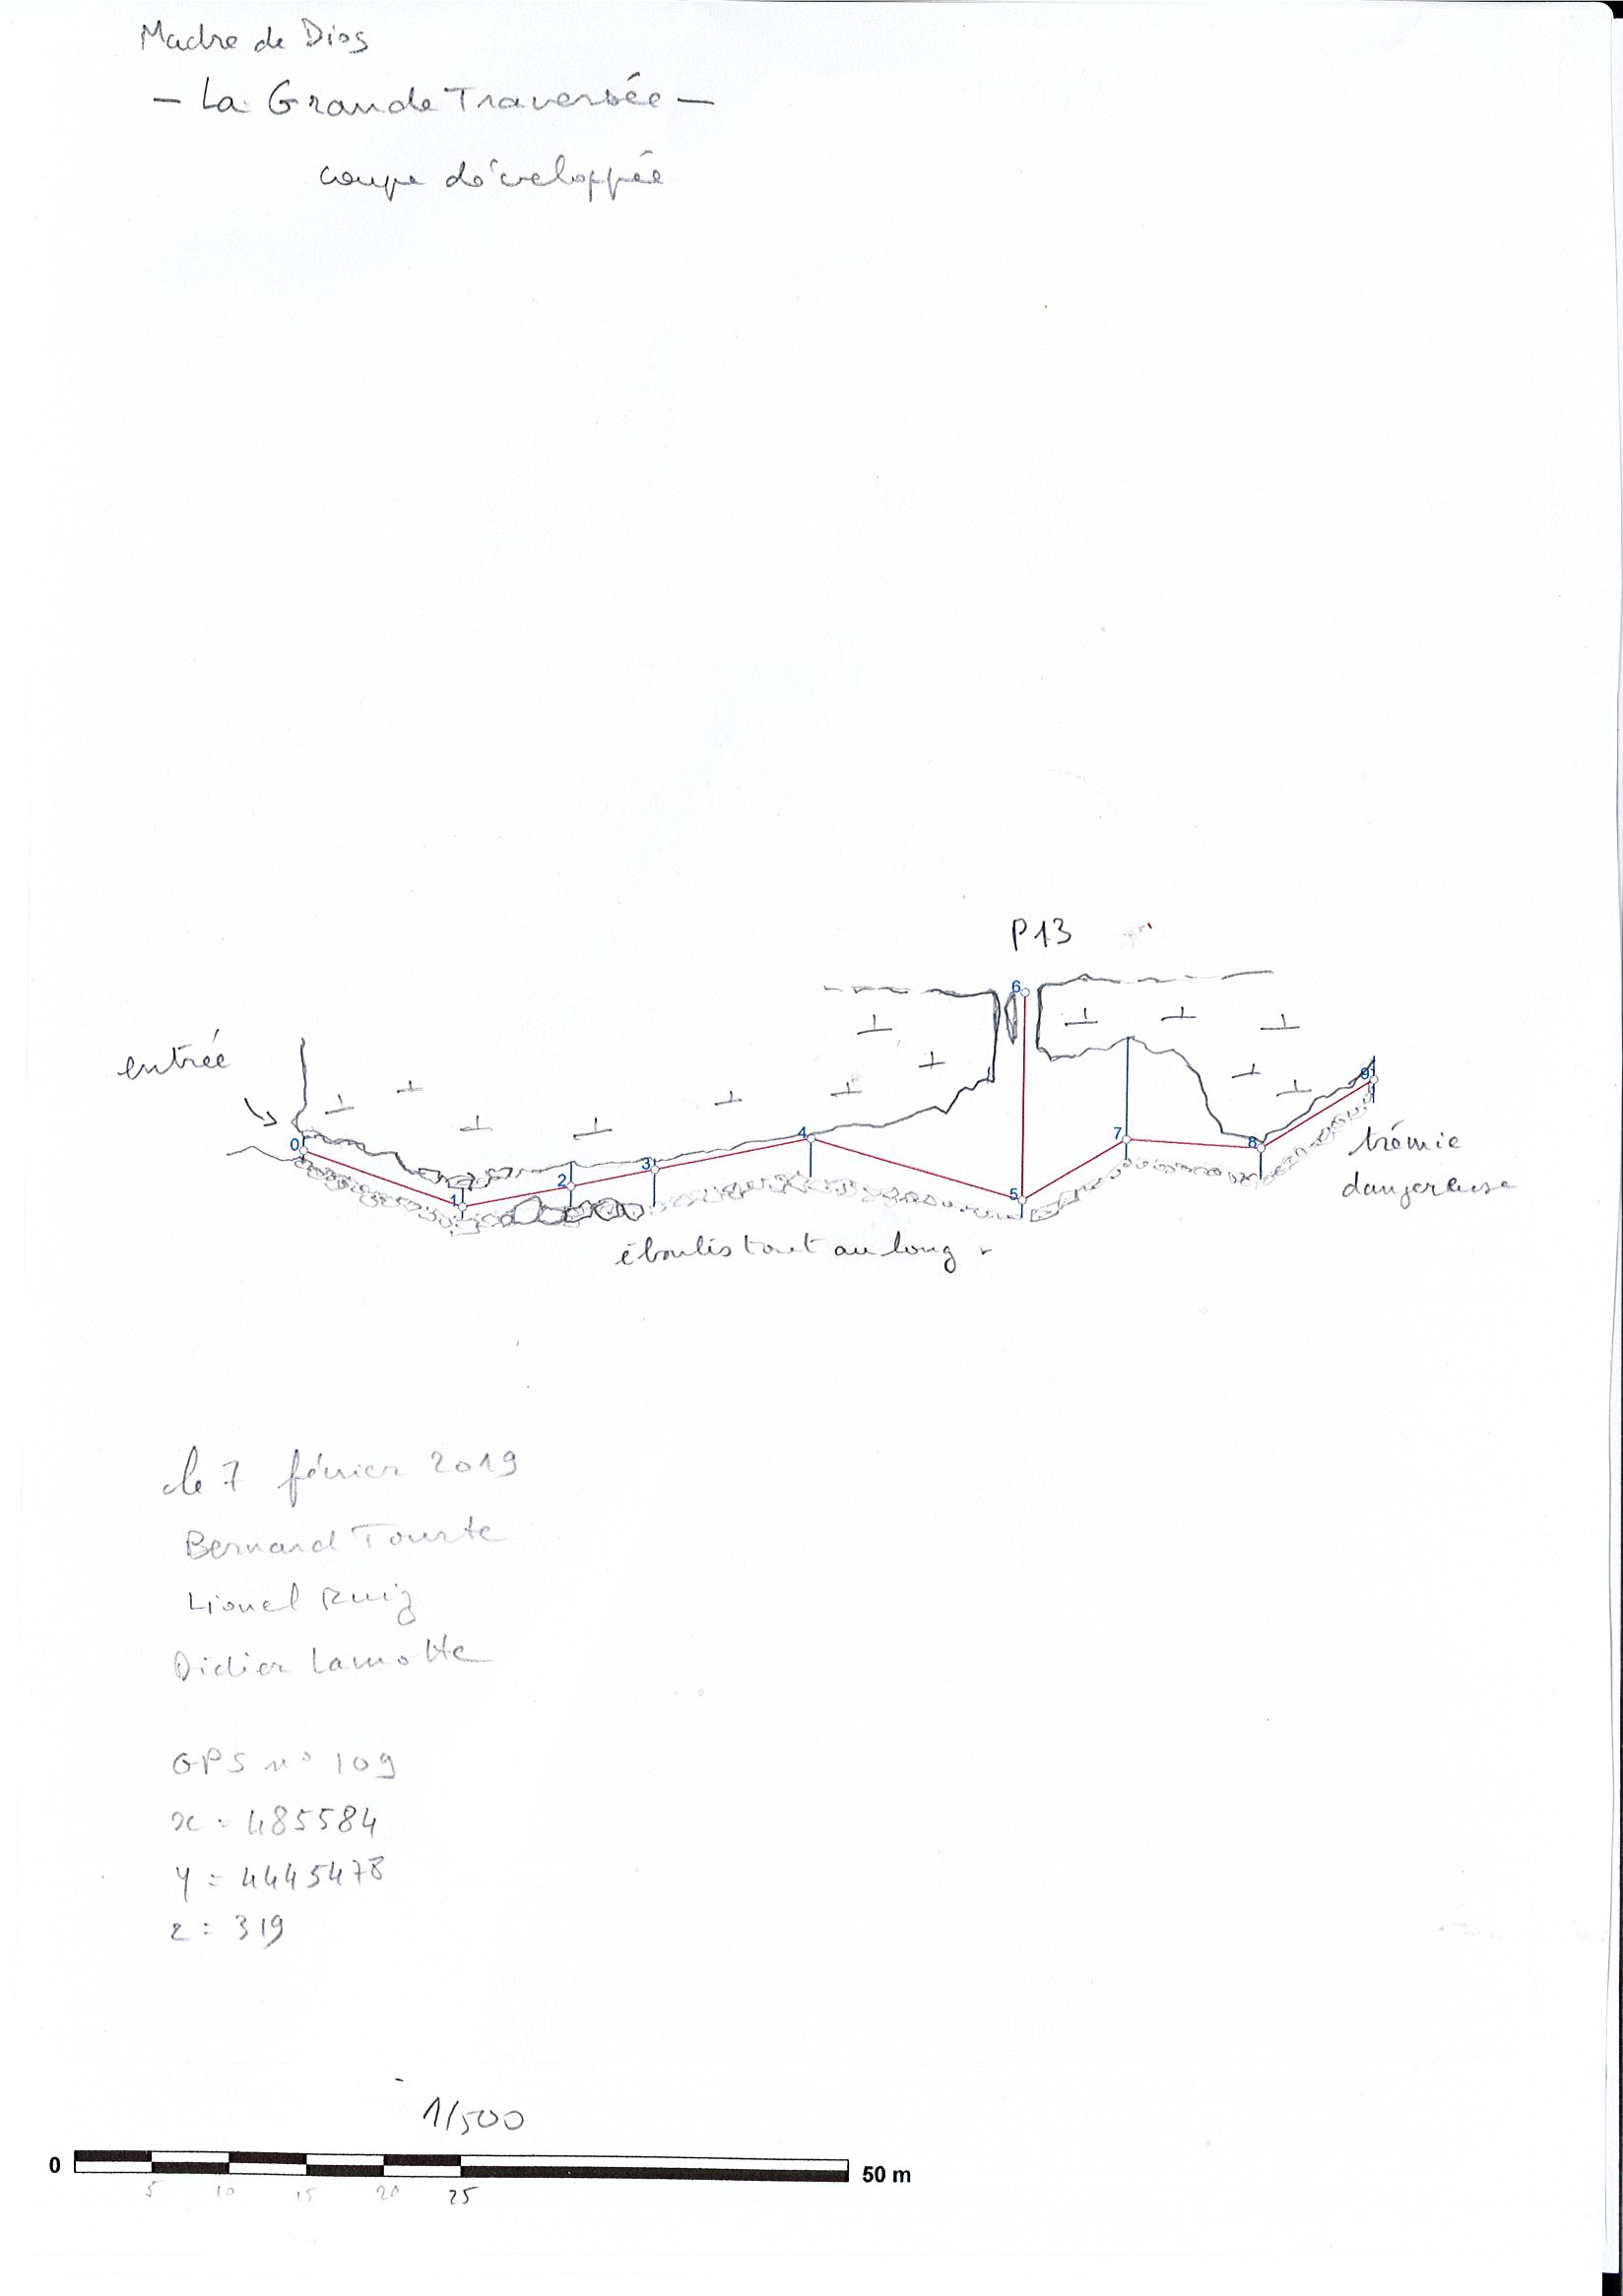 Madre de Dios
- La Grande Traversée -
coupe développée
P13
6
entrée
9
4
0
7
8
trémie
3
2
dangereuse
1
5
éboulis tout au long
le 7 février 2019
Bernard Tourte
Lionel Ruiz
Didier Lamotte
GPS n° 109
x = 485584
y = 4445478
z = 319
1/500
0
50 m
5 10 15 20 25